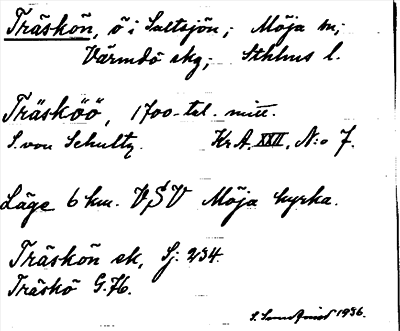 Träskön, ö i Saltsjön; Möja sn;
Värmdö skg; Sthlms l.
Träsköö, 1700-tal. mitt.
S. von Schultz. KrA. XXII, N:o 7.
Läge 6 km. VSV Möja kyrka.
Träskön ek, Sj. 234.
Träskö G.76.
1936.